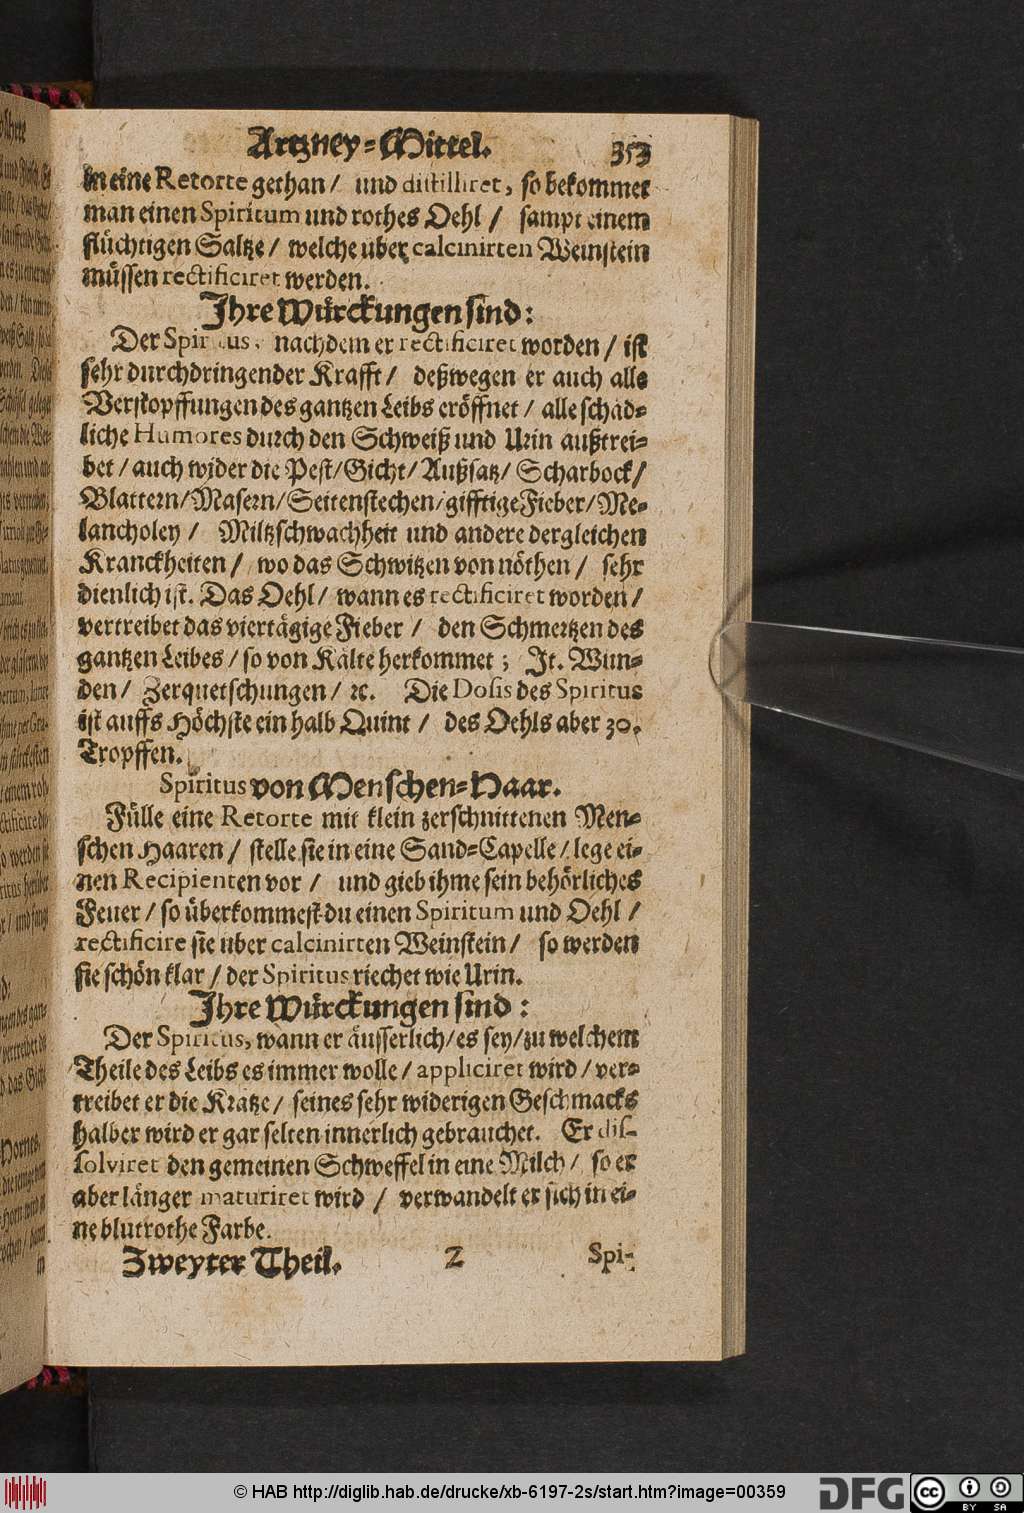 Artzney-Mittel. 353
in eine Retorte gethan / und distilliret, so bekommet
man einen Spiritum und rothes Oehl / sampt einem
flüchtigen Saltze / welche uber calcinirten Weinstein
müssen rectificiret werden.
Ihre Würckungen sind:
Der Spiritus, nachdem er rectificiret worden / ist
sehr durchdringender Krafft / deßwegen er auch alle
Verstopffungen des gantzen Leibs eröffnet / alle schäd-
liche Humores durch den Schweiß und Urin außtrei-
bet / auch wider die Pest / Gicht / Außsatz / Scharbock /
Blattern / Masern / Seitenstechen / gifftige Fieber / Me-
lancholey / Miltzschwachheit und andere dergleichen
Kranckheiten / wo das Schwitzen von nöthen / sehr
dienlich ist. Das Oehl / wann es rectificiret worden /
vertreibet das viertägige Fieber / den Schmertzen des
gantzen Leibes / so von Kälte herkommet ; It. Wun-
den / Zerquetschungen / ꝛc. Die Dosis des Spiritus
ist auffs Höchste ein halb Quint / des Oehls aber 30.
Tropffen.
Spiritus von Menschen-Haar.
Fülle eine Retorte mit klein zerschnittenen Men-
schen Haaren / stelle sie in eine Sand-Capelle / lege ei-
nen Recipienten vor / und gieb ihme sein behörliches
Feuer / so überkommest du einen Spiritum und Oehl /
rectificire sie uber calcinirten Weinstein / so werden
sie schön klar / der Spiritus riechet wie Urin.
Ihre Würckungen sind :
Der Spiritus, wann er äusserlich / es sey / zu welchem
Theile des Leibs es immer wolle / appliciret wird / ver-
treibet er die Krätze / seines sehr widerigen Geschmacks
halber wird er gar selten innerlich gebrauchet. Er dis-
solviret den gemeinen Schweffel in eine Milch / so er
aber länger maturiret wird / verwandelt er sich in ei-
ne blutrothe Farbe.
Zweyter Theil. Z Spi-
© HAB http://diglib.hab.de/drucke/xb-6197-2s/start.htm?image=00359
DFG cc BY SA